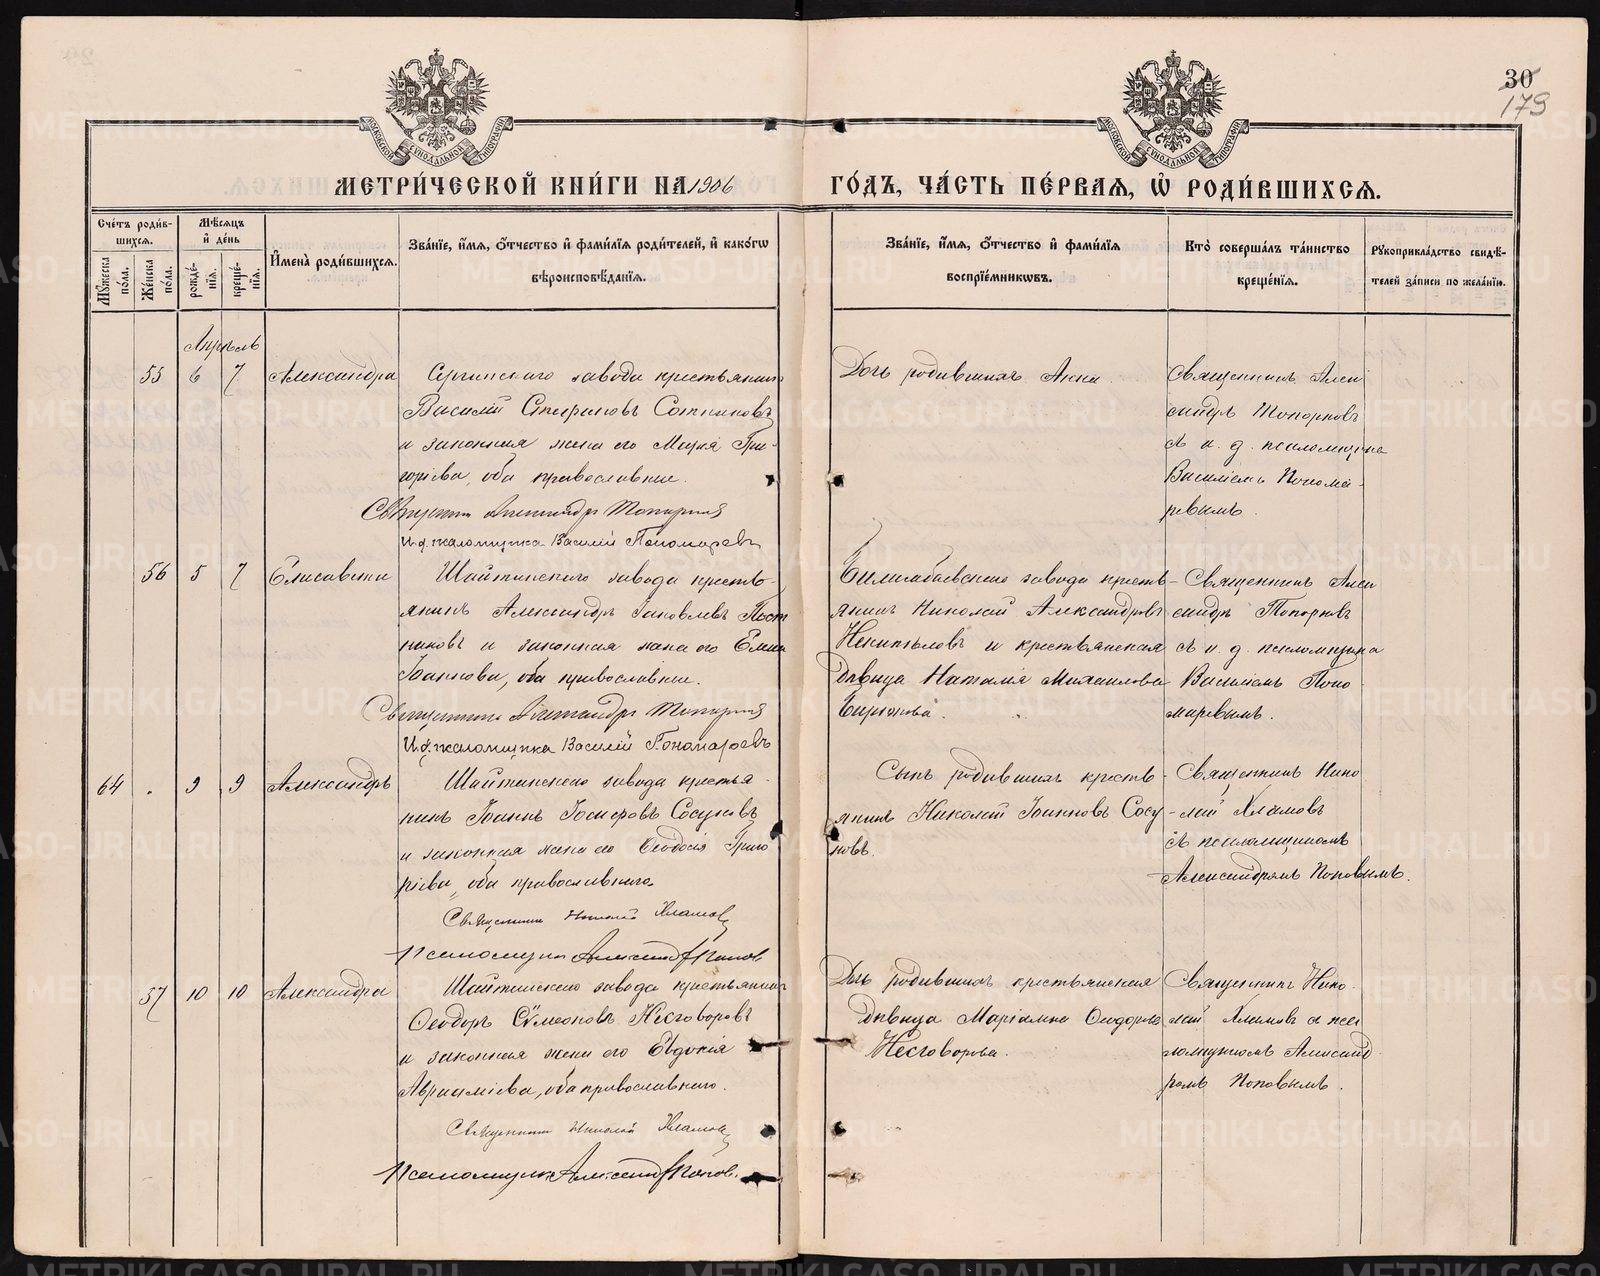 30
179
МЕТРИ́ЧЕСКОЙ КНИ́ГИ НА 1906 ГО́ДЪ, ЧА́СТЬ ПЕ́РВАЯ, Ѡ҆ РОДИ́ВШИХСЯ.
Сче́тъ роди́в-
шихся.
Мѣ́сяцъ
и҆ де́нь
Мꙋ́жеска по́ла.
Же́нска по́ла.
рожде́-
нїѧ.
креще́-
нїѧ.
И҆мена̀ роди́вшихсѧ.
Зва́нїе, и҆́мѧ, ѻ҆́тчество и҆ фами́лїѧ роди́телей, и҆ како́гѡ
вѣроисповѣ́данїѧ.
Зва́нїе, и҆́мѧ, ѻ҆́тчество и҆ фами́лїѧ
воспрїе́мникѡвъ.
Кто̀ соверша́лъ та́инство
креще́нїѧ.
Рꙋкоприкла́дство свидѣ́-
телей за́писи по жела́нїю.
Апрѣль
55 6 7 Александра
Сергинскаго завода крестьянинъ
Василій Стефановъ Сотниковъ
и законная жена его Марія Гри-
горіева, оба православные.
Священникъ Александръ Топорковъ
И.д. псаломщика Василій Пономаревъ
Дочь родившихъ Анна.
Священникъ Алек
сандръ Топорковъ
съ и. д. псаломщика
Василіемъ Понома-
ревымъ.
56 5 7 Елисавета
Шайтанскаго завода кресть-
янинъ Александръ Іаковлевъ Пост
никовъ и законная жена его Елена
Іоаннова, оба православные.
Священникъ Александръ Топорковъ
И.д. псаломщика Василій Пономаревъ
Билимбаевскаго завода кресть-
янинъ Николай Александровъ
Некипѣловъ и крестьянская
дѣвица Наталія Михаилова
Священникъ Алек
сандръ Топорковъ
съ и. д. псаломщика
Василіемъ Поно
маревымъ.
64 . 9 9 Александръ
Шайтанскаго завода крестья-
нинъ Іоаннъ Іосифовъ Сосуновъ
и законная жена его Ѳеодосія Григо
ріева, оба православнаго.
Священникъ Николай Хламовъ
Псаломщикъ Александръ Поповъ
Сынъ родившихъ кресть-
янинъ Николай Іоанновъ Сосу-
новъ.
Священникъ Нико
лай Хламовъ
съ псаломщикомъ
Александромъ Поповымъ.
57 10 10 Александра
Шайтанскаго завода крестьянинъ
Ѳеодоръ Сѵмеоновъ Несговоровъ
и законная жена его Евдокія
Авраамiева, оба православнаго.
Священникъ Николай Хламовъ
Псаломщикъ Александръ Поповъ.
Дочь родившихъ крестьянская
дѣвица Маріамна Ѳеодорова
Несговорова.
Священникъ Нико-
лай Хламовъ съ пса
ломщикомъ Александ
ромъ Поповымъ.